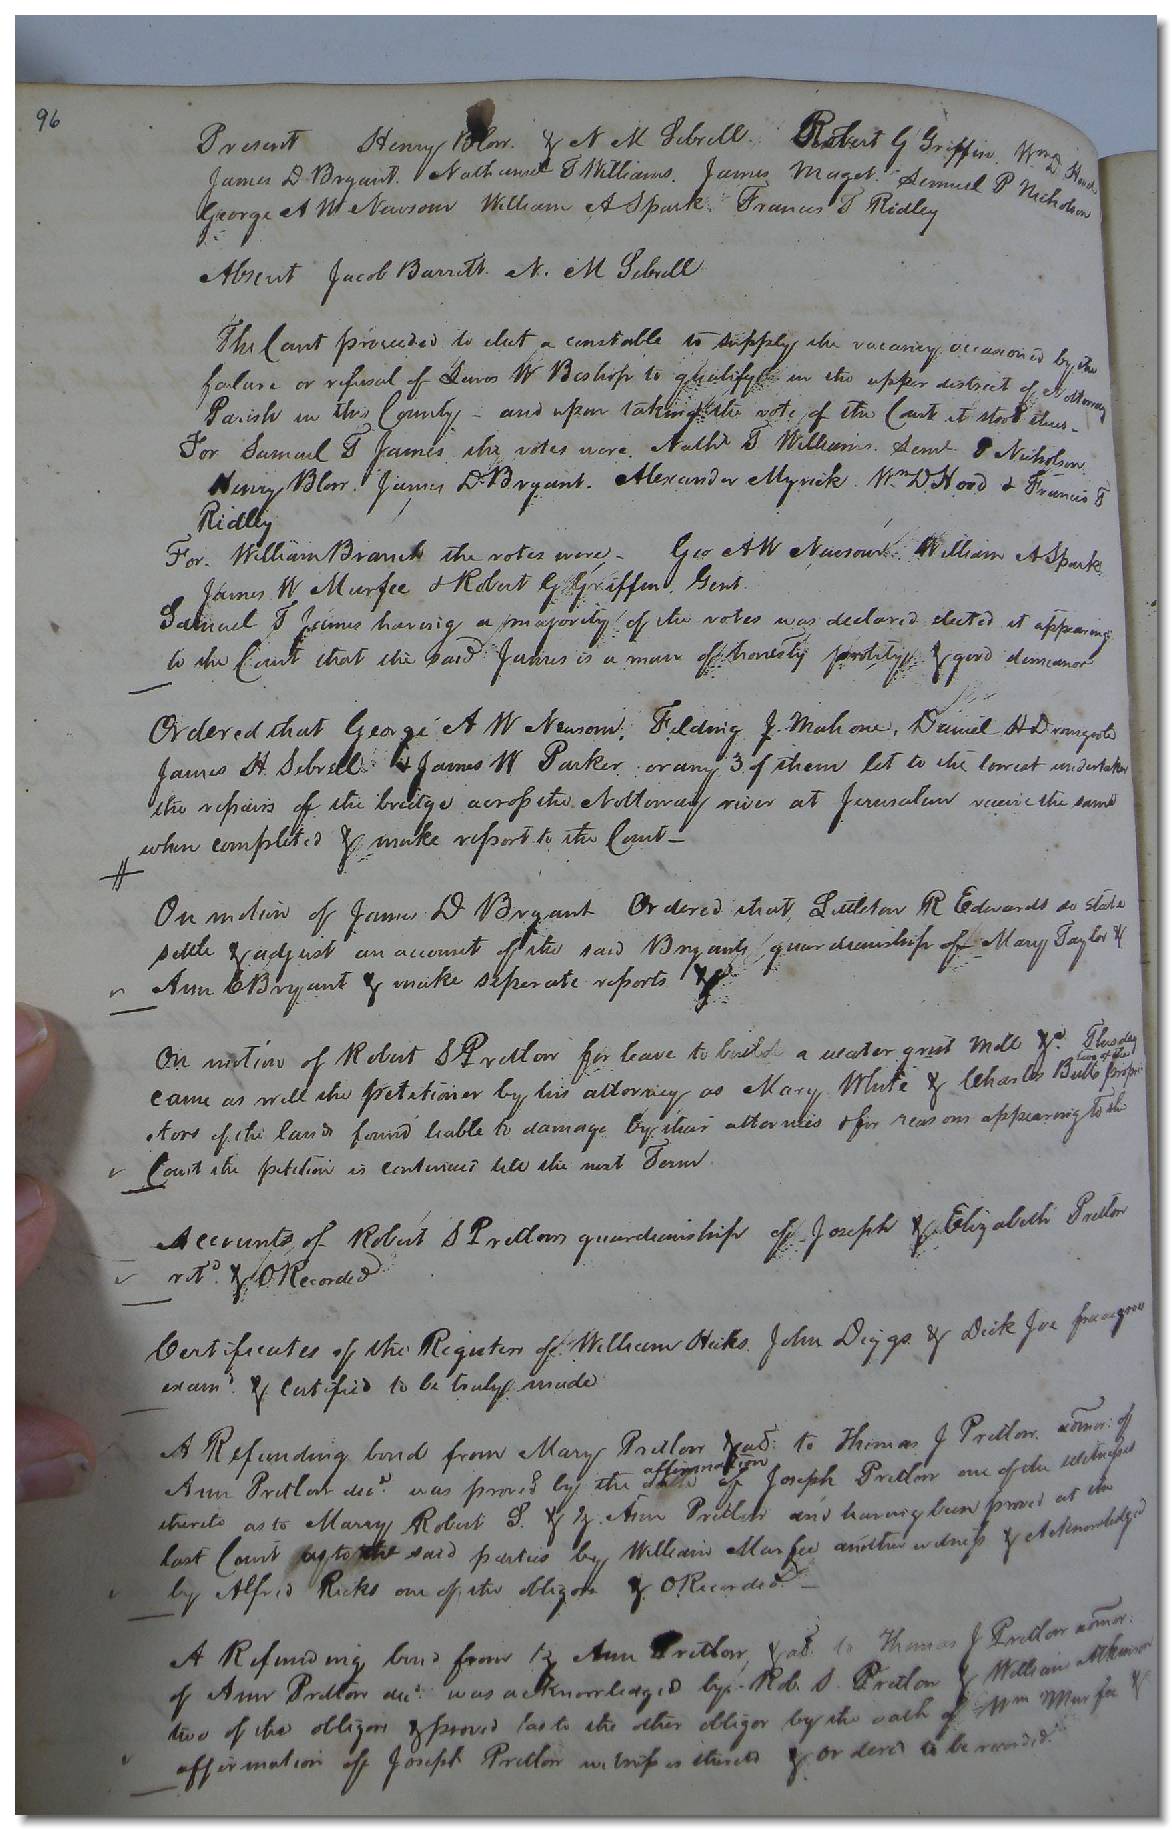 96
Present Henry Blow. & N M Sebrell. Robert G Griffin. Wm D Hood
James D Bryant. Nathaniel T Williams. James Maget. Samuel P Nicholson
George A W Newsom William A Spark. Francis T Ridley
Absent Jacob Barrett. N. M Sebrell
The Court proceeded to elect a constable to supply the vacancy occasioned by the
failure or refusal of W Bishop to qualify in the upper district of Nottoway
Parish in this County – and upon taking the vote of the Court it stood thus –
For Samuel T James the votes were Nathl T Williams. Saml P Nicholson
Henry Blow. James D Bryant. Alexander Myrick. Wm D Hood & Francis T
Ridley
For William Branch the votes were – Geo A W Newsom. William A Spark
James W Murfee & Robert G Griffin. Gent.
Samuel T James having a majority of the votes was declared elected it appearing
to the Court that the said James is a man of honesty probity & good demeanor
Ordered that George A W Newsom, Felding J Mahone, Daniel H Dromgoole
James H. Sebrell & James W Parker or any 3 of them let to the lowest undertaker
the repairs of the bridge across the Nottoway river at Jerusalem receive the same
when completed & make report to the Court –
On motion of James D Bryant Ordered that Littleton R Edwards do state
settle & adjust an account of the said Bryants guardianship of Mary Taylor &
Ann E Bryant & make seperate reports &c
On motion of Robert S Pretlow for leave to build a water grist Mill &c. This day
came as well the petitioner by his attorney as Mary White & Charles Butts two of the propri
etors of the lands found liable to damage by their attornies & for reasons appearing to the
Court the petition is continued till the next Term.
Accounts of Robert S Pretlows guardianship of Joseph & Elizabeth Pretlow
retd. & O Recorded
Certificates of the Registers of William Hicks, John Diggs & Dick Joe free negroes
examd. & certified to be truly made
A Refunding bond from Mary Pretlow & als. to Thomas J Pretlow admor. of
Ann Pretlow decd. was proved by the affirmation of Joseph Pretlow one of the witnesses
thereto as to Mary, Robert S. & Ann Pretlow and having been proved at the
last Court as to the said parties by William Murfee another witness & Acknowledged
by Alfred Ricks one of the obligors & O Recorded. –
A Refunding bond from Ann Pretlow, & als to Thomas J Pretlow admor.
of Ann Pretlow decd. was acknowledged by Rob. S. Pretlow & William Atkinson
two of the obligors & proved as to the other obligor by the oath of Wm Murfee &
affirmation of Joseph Pretlow witnesses thereto & Ordered to be recorded.